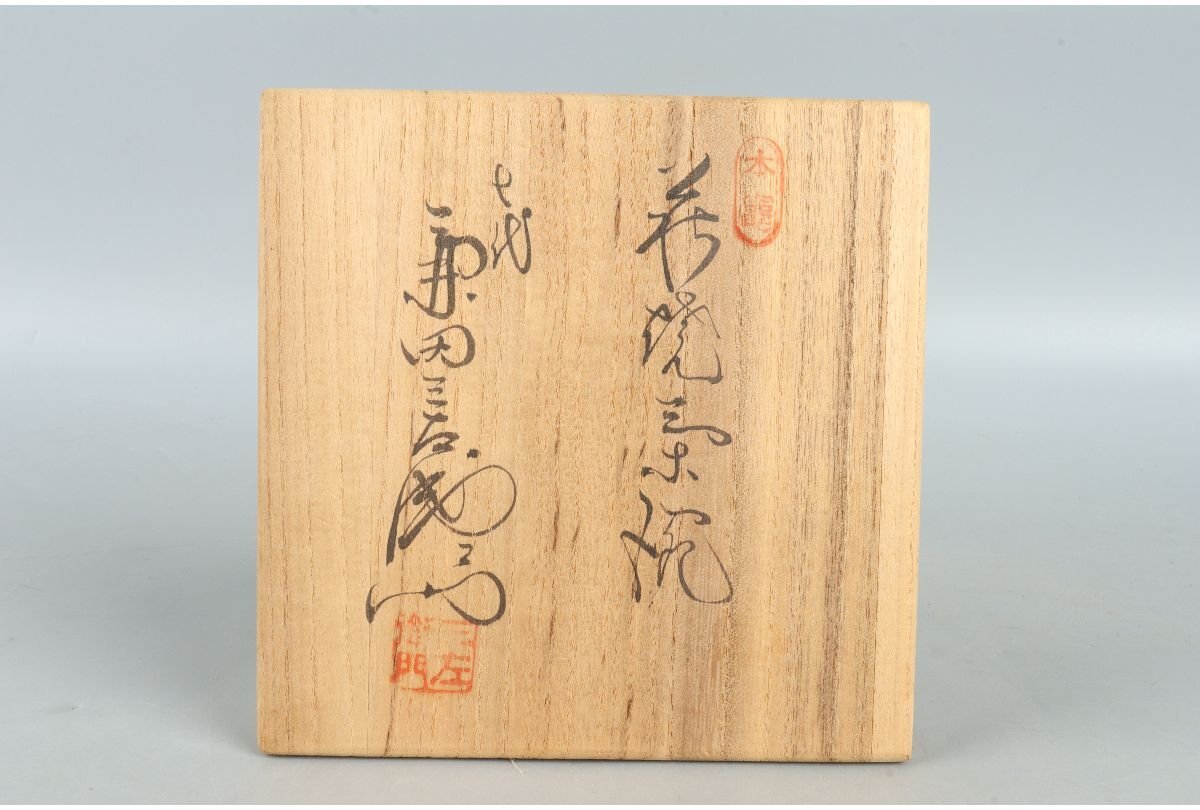 本
萩焼茶碗
七代
兼田三左衛門
三左
衛門